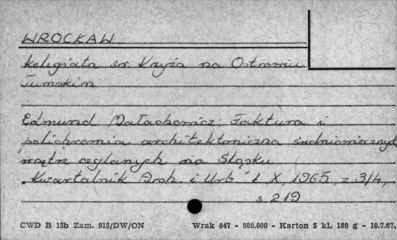 WROCŁAW
Kolegiata św. Krzyża na Ostrowiu
Tumskim
Edmund Małachowicz: Faktura i
polichromia architektoniczna średniowiecznych
wnętrz ceglanych na Śląsku
"Kwartalnik Arch. i Urb" t X, 1965, z 3/4,
s 219
CWD B 15b Zam. 915/DW/ON Wrak 647 - 980.000 - Karton 5 kl. 180 g - 10.7.67.